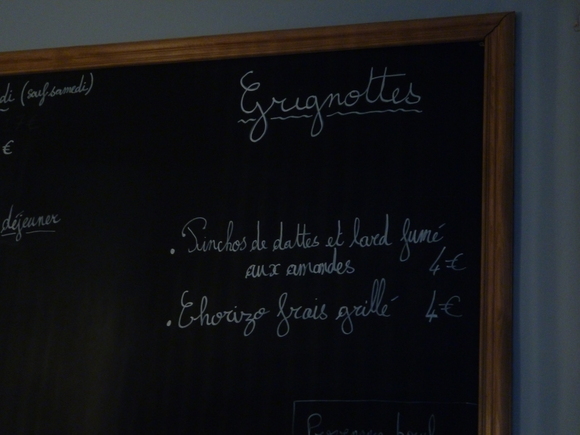 di (sauf samedi)
Grignottes
€
déjeuner
. Pinchos de dattes et lard fumé
aux amandes 4€
. Chorizo frais grillé 4€